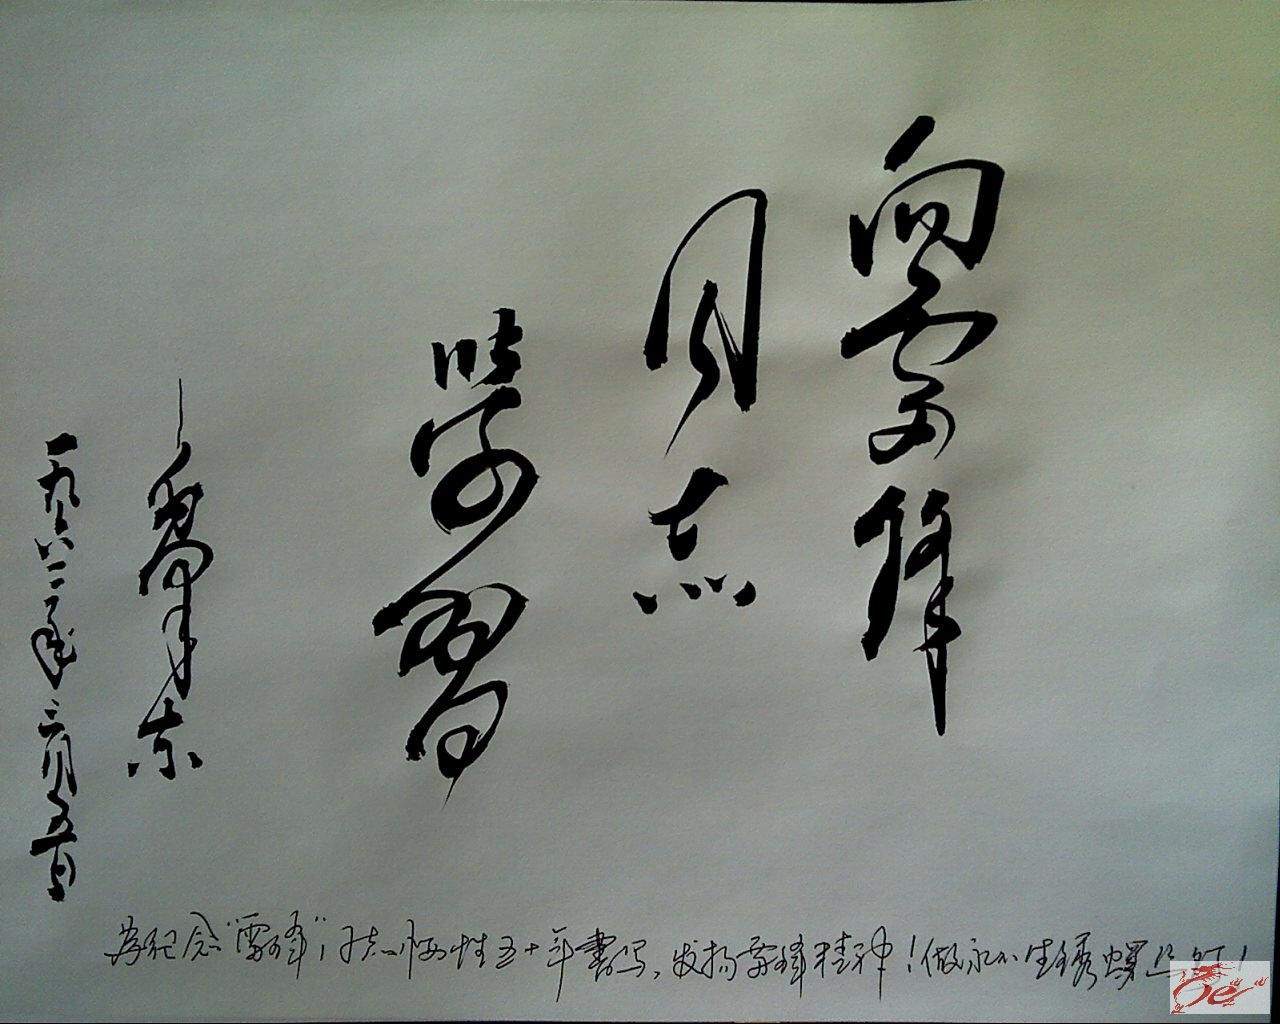 向雷锋
同志
學習
毛澤东
一九六二年三月五日
为纪念“雷锋”同志牺牲五十年書写，发扬雷锋精神！做永不生锈螺丝钉！